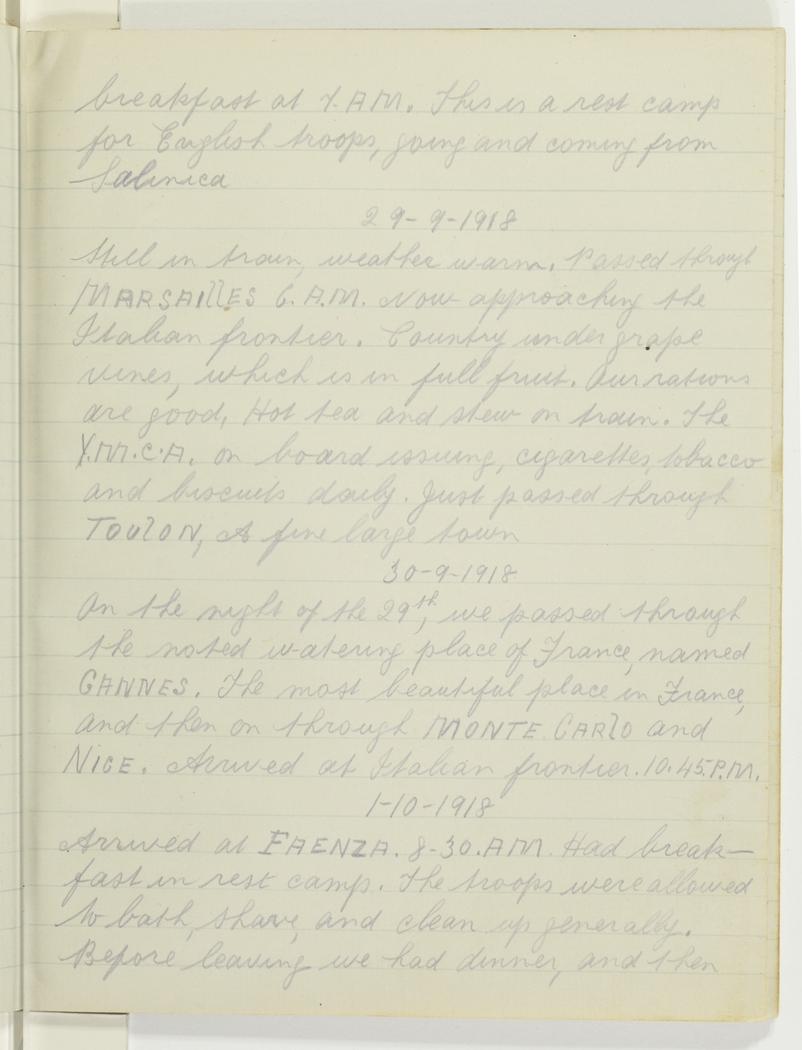 breakfast at 7. A.M. This is a rest camp
for English troops, going and coming from
Salinica
29-9-1918
Still in train, weather warm. Passed through
MARSAILLES 6. A.M. Now approaching the
Italian frontier. Country under grape
vines, which is in full fruit. Our rations
are good, Hot tea and stew on train. The
Y.M.C.A. on board issuing, cigarettes, tobacco
and biscuits daily. Just passed through
TOULON, A fine large town
30-9-1918
On the night of the 29th, we passed through
the noted watering place of France, named
CANNES. The most beautiful place in France,
and then on through MONTE CARLO and
NICE. Arrived at Italian frontier. 10.45.P.M.
1-10-1918
Arrived at FAENZA. 8-30.A.M. Had break-
fast in rest camp. The troops were allowed
to bath, shave, and clean up generally.
Before leaving we had dinner, and then